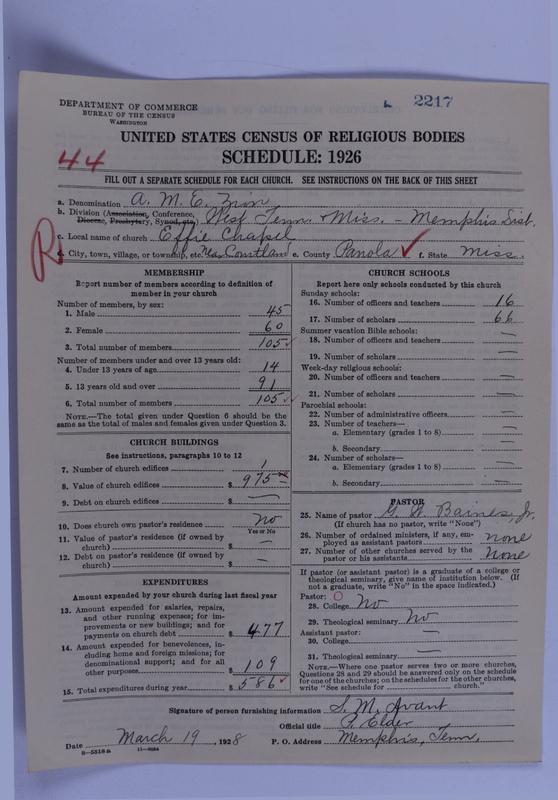 2217
DEPARTMENT OF COMMERCE
BUREAU OF THE CENSUS
WASHINGTON
UNITED STATES CENSUS OF RELIGIOUS BODIES
SCHEDULE: 1926
44
FILL OUT A SEPARATE SCHEDULE FOR EACH CHURCH. SEE INSTRUCTIONS ON THE BACK OF THIS SHEET
a. Denomination A. M. E. Zion
b. Division (Association, Conference, Diocese, Presbytery, Synod, etc.) West Tenn. & Miss. - Memphis Dist.
c. Local name of church Effie Chapel
R
d. City, town, village, or township, etc. Courtland e. County Panola ✓ f. State Miss.
MEMBERSHIP
Report number of members according to definition of
member in your church
Number of members, by sex:
1. Male 45
2. Female 60
3. Total number of members 105 ✓
Number of members under and over 13 years old:
4. Under 13 years of age 14
5. 13 years old and over 91
6. Total number of members 105 ✓
NOTE.—The total given under Question 6 should be
same as the total of males and females given under Question 3.
CHURCH BUILDINGS
See instructions, paragraphs 10 to 12
7. Number of church edifices 1
8. Value of church edifices $ 975
9. Debt on church edifices $ —
10. Does church own pastor's residence? No
Yes or No
11. Value of pastor's residence (if owned by
church) $ —
12. Debt on pastor's residence (if owned by
church) $ —
EXPENDITURES
Amount expended by your church during last fiscal year
13. Amount expended for salaries, repairs,
and other running expenses; for im-
provements or new buildings; and for
payments on church debt $ 477
14. Amount expended for benevolences, in-
cluding home and foreign missions; for
denominational support; and for all
other purposes $ 109
15. Total expenditures during year $ 586 ✓
CHURCH SCHOOLS
Report here only schools conducted by this church
Sunday schools:
16. Number of officers and teachers 16
17. Number of scholars 66
Summer vacation Bible schools:
18. Number of officers and teachers —
19. Number of scholars —
Week-day religious schools:
20. Number of officers and teachers —
21. Number of scholars —
Parochial schools:
22. Number of administrative officers —
23. Number of teachers—
a. Elementary (grades 1 to 8) —
b. Secondary —
24. Number of scholars—
a. Elementary (grades 1 to 8) —
b. Secondary —
PASTOR
25. Name of pastor G. W. Baines, Jr.
(If church has no pastor, write "None")
26. Number of ordained ministers, if any, em-
ployed as assistant pastors none
27. Number of other churches served by the
pastor or his assistants None
If pastor (or assistant pastor) is a graduate of a college or
theological seminary, give name of institution below. (If
not a graduate, write "No" in the space indicated.)
Pastor: O
28. College No
29. Theological seminary No
Assistant pastor: —
30. College
31. Theological seminary —
NOTE.—Where one pastor serves two or more churches,
Questions 28 and 29 should be answered only on the schedule
for one of the churches; on the schedules for the other churches,
write "See schedule for church."
Signature of person furnishing information S. M. Avant
Official title P. Elder
Date March 19, 1928 P. O. Address Memphis, Tenn.
8—5518a 11—9084